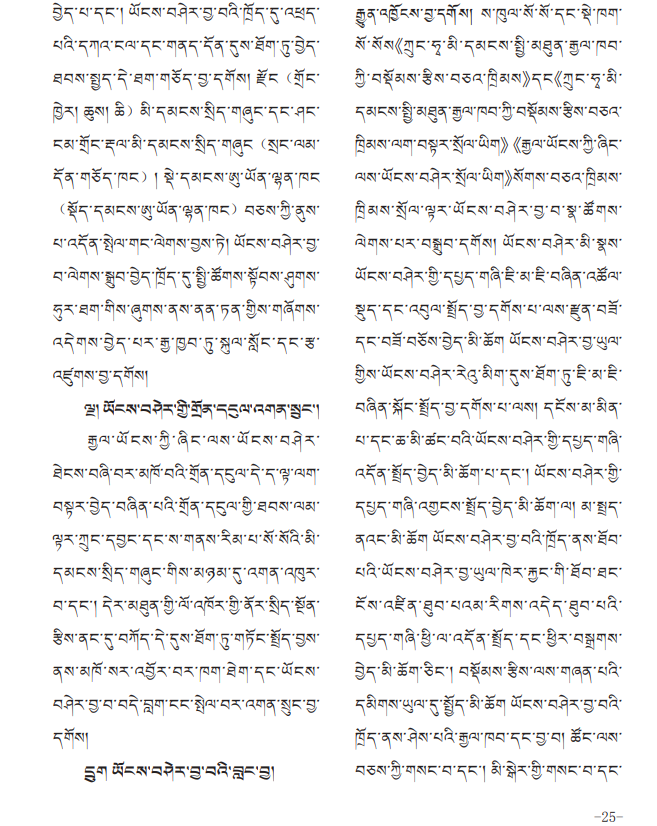 བྱེད་པ་དང་། ཡོངས་བཤེར་བྱ་བའི་ཁྲོད་དུ་འཕྲད་
པའི་དཀའ་ངལ་དང་གནད་དོན་དུས་ཐོག་ཏུ་བྱེད་
ཐབས་སྤྱད་དེ་ཐག་གཅོད་བྱ་དགོས། རྫོང（གྲོང་
ཁྱེར། ཆུས། ཆི）མི་དམངས་སྲིད་གཞུང་དང་ཤང་
ངམ་གྲོང་རྡལ་མི་དམངས་སྲིད་གཞུང（སྲང་ལམ་
དོན་གཅོད་ཁང）། སྡེ་དམངས་ཨུ་ཡོན་ལྷན་ཁང
（སྡོད་དམངས་ཨུ་ཡོན་ལྷན་ཁང）བཅས་ཀྱི་ནུས་
པ་འདོན་སྤེལ་གང་ལེགས་བྱས་ཏེ། ཡོངས་བཤེར་བྱ་
བ་ལེགས་སྒྲུབ་བྱེད་ཁྲོད་དུ་སྤྱི་ཚོགས་སྟོབས་ཤུགས་
ཧུར་ཐག་གིས་ཞུགས་ནས་ནན་ཏན་གྱིས་གཞོགས་
འདེགས་བྱེད་པར་རྒྱ་ཁྱབ་ཏུ་སྐུལ་སློང་དང་རྩ་
འཛུགས་བྱ་དགོས།
ལྔ། ཡོངས་བཤེར་གྱི་གྲོན་དངུལ་འགན་སྲུང་།
རྒྱལ་ཡོངས་ཀྱི་ཞིང་ལས་ཡོངས་བཤེར་
ཐེངས་བཞི་བར་མཁོ་བའི་གྲོན་དངུལ་དེ་ད་ལྟ་ལག་
བསྟར་བྱེད་བཞིན་པའི་གྲོན་དངུལ་གྱི་ཐབས་ལམ་
ལྟར་ཀྲུང་དབྱང་དང་ས་གནས་རིམ་པ་སོ་སོའི་མི་
དམངས་སྲིད་གཞུང་གིས་མཉམ་དུ་འགན་འཁུར་
བ་དང་། དེར་མཐུན་གྱི་ལོ་འཁོར་གྱི་ནོར་སྲིད་སྔོན་
རྩིས་ནང་དུ་བཀོད་དེ་དུས་ཐོག་ཏུ་གཏོང་སྤྲོད་བྱས་
ནས་མཁོ་སར་འབྱོར་བར་ཁག་ཐེག་དང་ཡོངས་
བཤེར་བྱ་བ་བདེ་བླག་ངང་སྤེལ་བར་འགན་སྲུང་བྱ་
དགོས།
དྲུག ཡོངས་བཤེར་བྱ་བའི་བླང་བྱ།
རྒྱུན་འཁྱོངས་བྱ་དགོས། ས་ཁུལ་སོ་སོ་དང་སྡེ་ཁག་
སོ་སོས《ཀྲུང་ཧྭ་མི་དམངས་སྤྱི་མཐུན་རྒྱལ་ཁབ་
ཀྱི་བསྡོམས་རྩིས་བཅའ་ཁྲིམས》དང《ཀྲུང་ཧྭ་མི་
དམངས་སྤྱི་མཐུན་རྒྱལ་ཁབ་ཀྱི་བསྡོམས་རྩིས་བཅའ་
ཁྲིམས་ལག་བསྟར་སྲོལ་ཡིག》《རྒྱལ་ཡོངས་ཀྱི་ཞིང་
ལས་ཡོངས་བཤེར་སྲོལ་ཡིག》སོགས་བཅའ་ཁྲིམས་
ཁྲིམས་སྲོལ་ལྟར་ཡོངས་བཤེར་བྱ་བ་སྣ་ཚོགས་
ལེགས་པར་བསྒྲུབ་དགོས། ཡོངས་བཤེར་མི་སྣས་
ཡོངས་བཤེར་གྱི་དཔྱད་གཞི་ཇི་མ་ཇི་བཞིན་འཚོལ་
སྡུད་དང་འབུལ་སྤྲོད་བྱ་དགོས་པ་ལས་རྫུན་བཟོ་
དང་བཟོ་བཅོས་བྱེད་མི་ཆོག ཡོངས་བཤེར་བྱ་ཡུལ་
གྱིས་ཡོངས་བཤེར་རེའུ་མིག་དུས་ཐོག་ཏུ་ཇི་མ་ཇི་
བཞིན་སྐོང་སྤྲོད་བྱ་དགོས་པ་ལས། དངོས་མ་མིན་
པ་དང་ཆ་མི་ཚང་བའི་ཡོངས་བཤེར་གྱི་དཔྱད་གཞི་
འདོན་སྤྲོད་བྱེད་མི་ཆོག་པ་དང་། ཡོངས་བཤེར་གྱི་
དཔྱད་གཞི་འགྱངས་སྤྲོད་བྱེད་མི་ཆོག་ལ། མ་སྤྲད་
ནའང་མི་ཆོག ཡོངས་བཤེར་བྱ་བའི་ཁྲོད་ནས་ཐོབ་
པའི་ཡོངས་བཤེར་བྱ་ཡུལ་ཁེར་རྐྱང་གི་ཐོབ་ཐང་
ངོས་འཛིན་ཐུབ་པའམ་རིགས་འདེད་ཐུབ་པའི་
དཔྱད་གཞི་ཕྱི་ལ་འདོན་སྤྲོད་དང་ཕྱིར་བསྒྲགས་
བྱེད་མི་ཆོག་ཅིང་། བསྡོམས་རྩིས་ལས་གཞན་པའི་
དམིགས་ཡུལ་དུ་སྤྱོད་མི་ཆོག ཡོངས་བཤེར་བྱ་བའི་
ཁྲོད་ནས་ཤེས་པའི་རྒྱལ་ཁབ་དང་བྱ་བ། ཚོང་ལས་
བཅས་ཀྱི་གསང་བ་དང་། མི་སྒེར་གྱི་གསང་བ་དང་
-25-